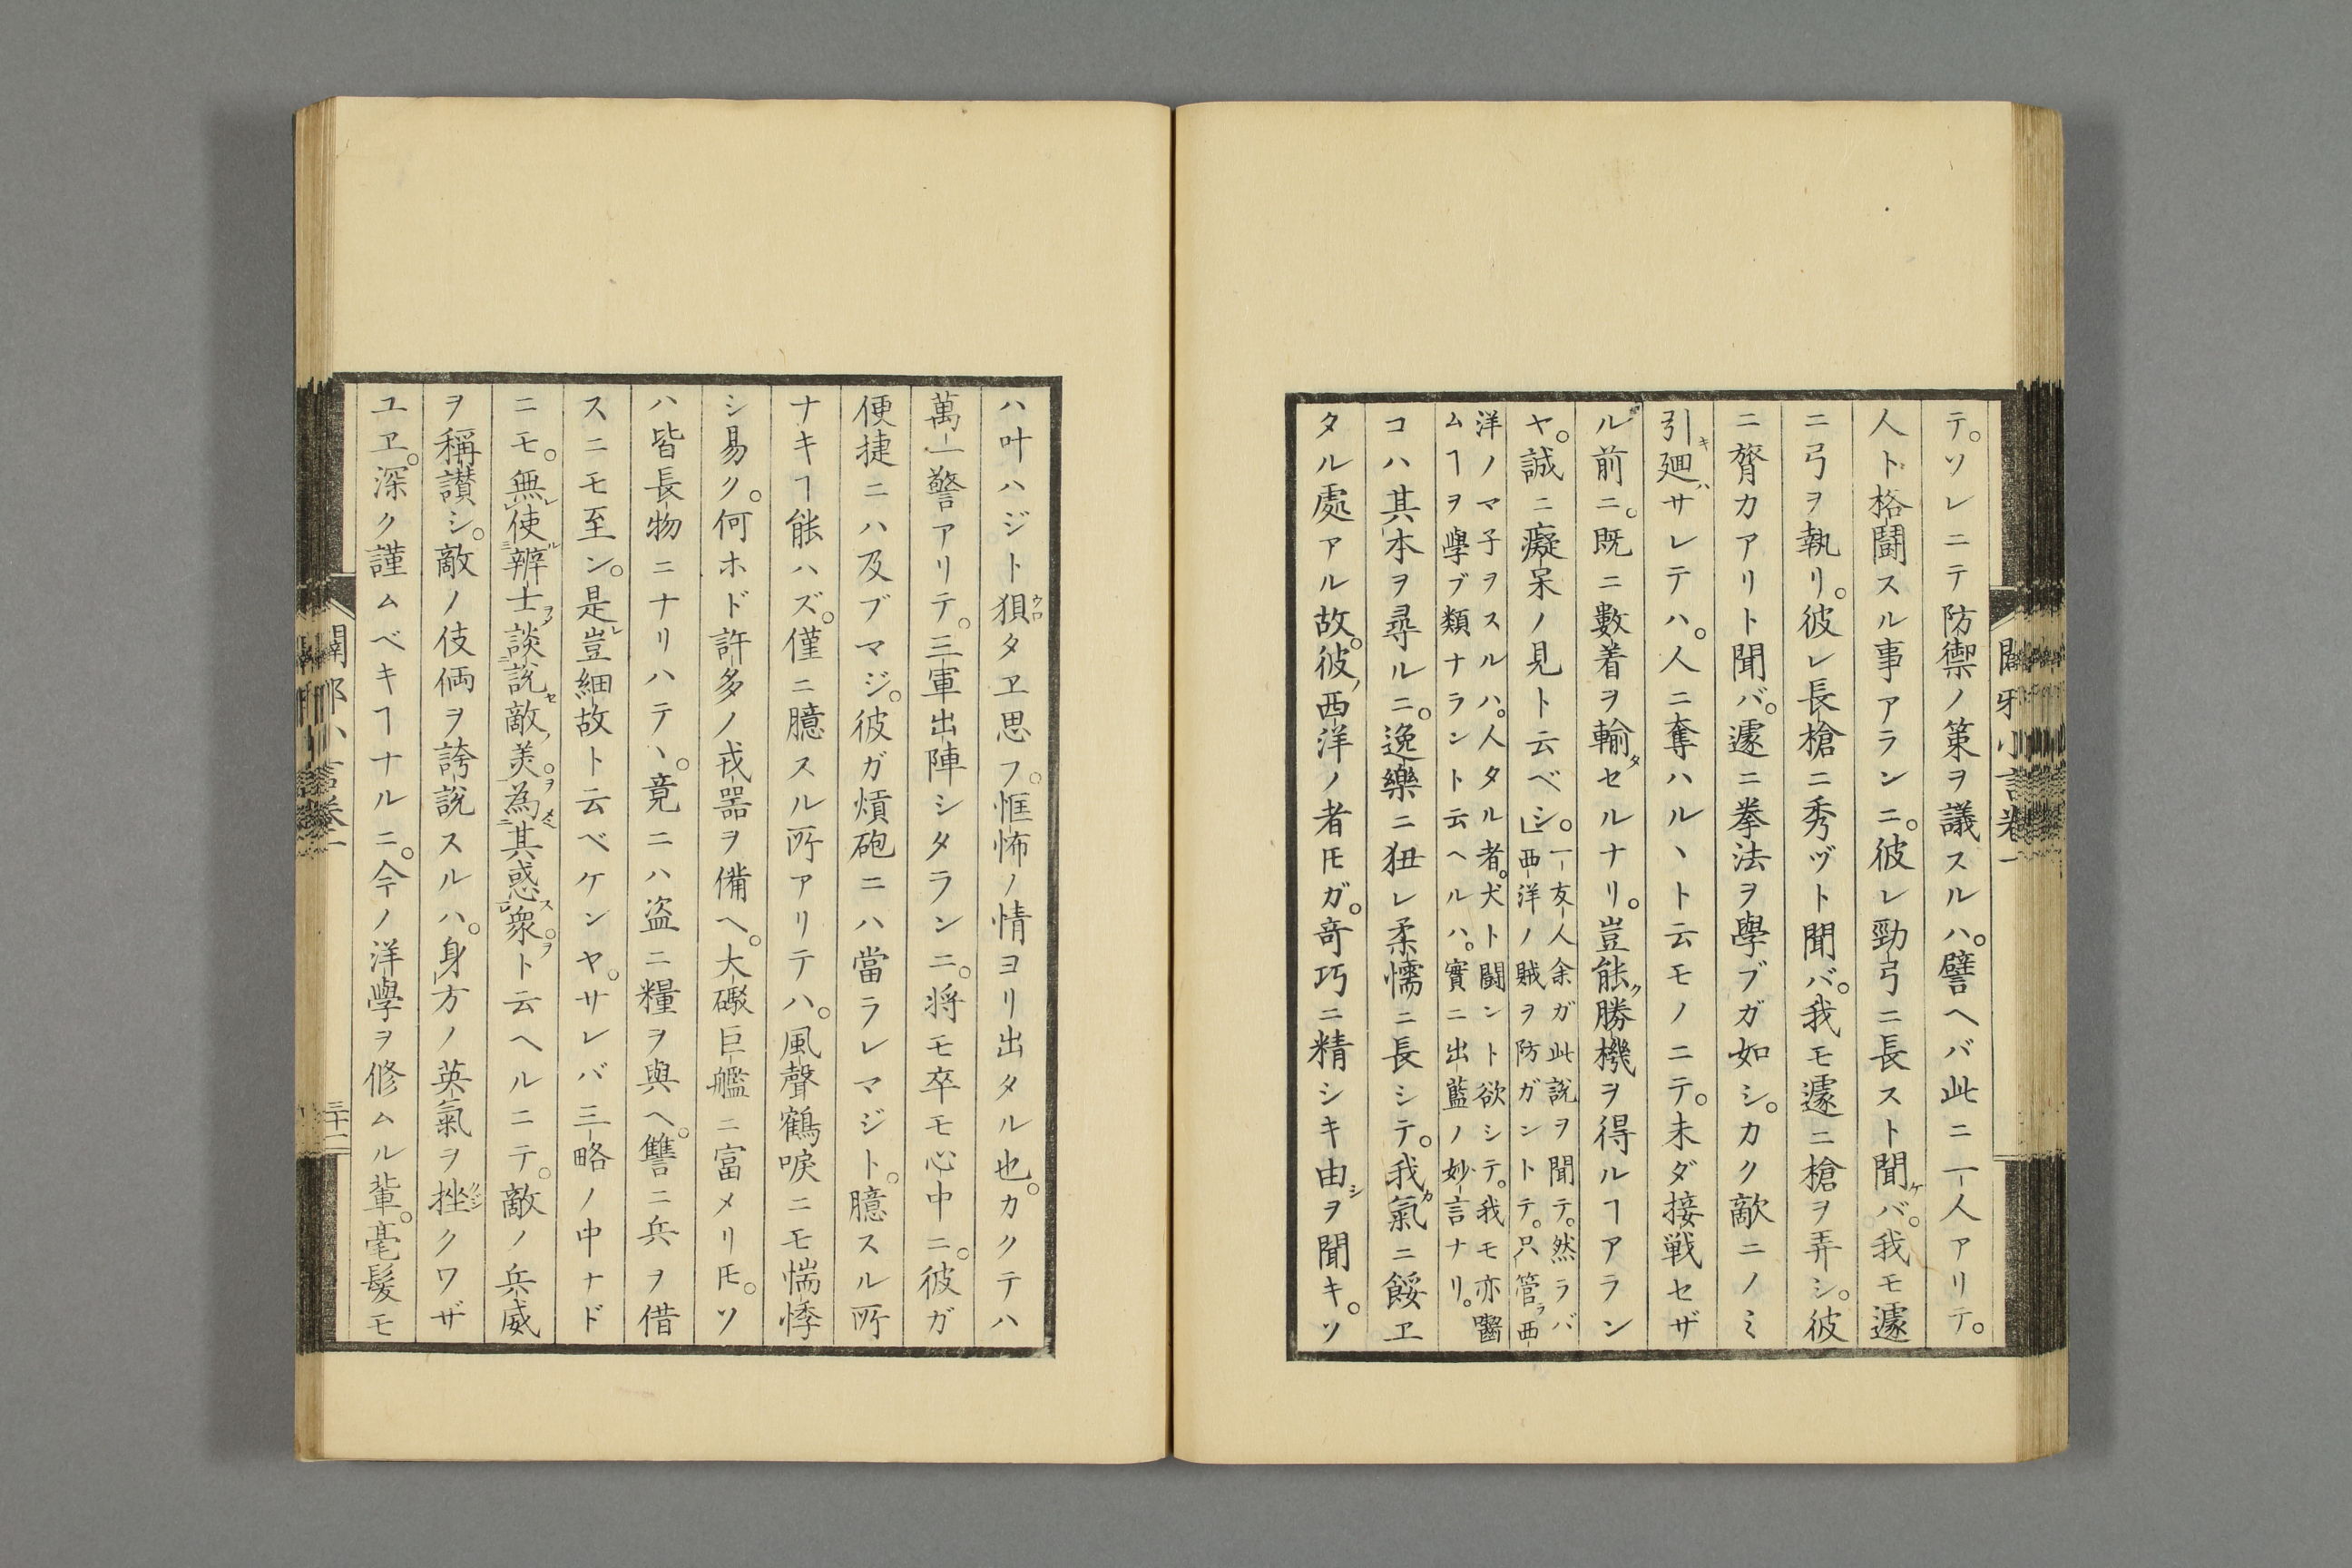 テ。ソレニテ防禦ノ策ヲ議スルハ。譬ヘバ此ニ一人アリテ。
人ト格闘スル事アランニ。彼レ勁弓ニ長スト聞ケバ。我モ遽
ニ弓ヲ執リ。彼レ長槍ニ秀ヅト聞バ。我モ遽ニ槍ヲ弄シ。彼
ニ膂カアリト聞バ。遽ニ拳法ヲ學ブガ如シ。カク敵ニノミ
引キ廻ハサレテハ。人ニ奪ハルヽト云モノニテ。未ダ接戦セザ
ル前ニ。既ニ數着ヲ輸タセルナリ。豈能ク勝機ヲ得ルヿアラン
ヤ。誠ニ癡呆ノ見ト云ベシ。
一友人余ガ此説ヲ聞テ。然ラバ
西洋ノ賊ヲ防ガントテ。只管ラ西
洋ノマ子ヲスルハ。人タル者。犬ト闘ント欲シテ。我モ亦齧
ムヿヲ學ブ類ナラント云ヘルハ。實ニ出藍ノ妙言ナリ。
コハ其本ヲ尋ルニ。逸樂ニ狃レ柔懦ニ長シテ。我カ氣ニ餒ヱ
タル處アル故。彼ノ西洋ノ者𪜈ガ。奇巧ニ精シキ由シヲ聞キ。ソ
ハ叶ハジト狽ウロタヱ思フ。恇怖ノ情ヨリ出タル也。カクテハ
萬一警アリテ。三軍出陣シタランニ。将モ卒モ心中ニ。彼ガ
便捷ニハ及ブマジ。彼ガ熕砲ニハ當ラレマジト。臆スル所
ナキヿ能ハズ。僅ニ臆スル所アリテハ。風聲鶴唳ニモ惴悸
シ易ク。何ホド許多ノ戎噐ヲ備ヘ。大礮巨艦ニ富メリ𪜈。ソ
ハ皆長物ニナリハテヽ。竟ニハ盗ニ糧ヲ與ヘ。讐ニ兵ヲ借
スニモ至ン。是レ豈細故ト云ベケンヤ。サレバ三略ノ中ナド
ニモ。無使辨士談説敵美。為其惑衆ト云ヘルニテ。敵ノ兵威
ヲ稱讃シ。敵ノ伎倆ヲ誇説スルハ。身方ノ英氣ヲ挫クワザ
ユヱ。深ク謹ムベキヿナルニ。今ノ洋學ヲ修ムル輩。毫髪モ
三十二